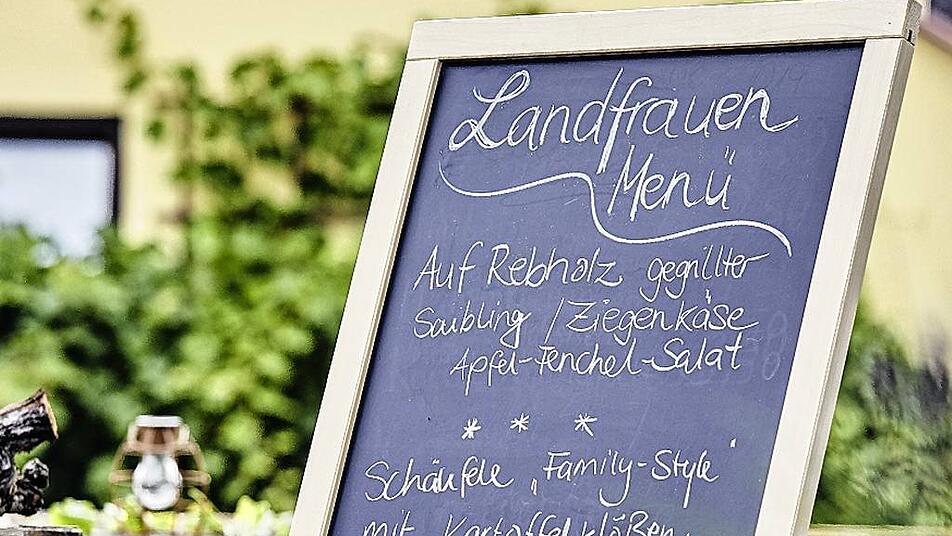 Landfrauen
Menü
Auf Rebholz gegrillter
Saibling / Ziegenkäse
Apfel-Fenchel-Salat
* * *
Schäufele „Family-Style"
mit Kartoffelklößen